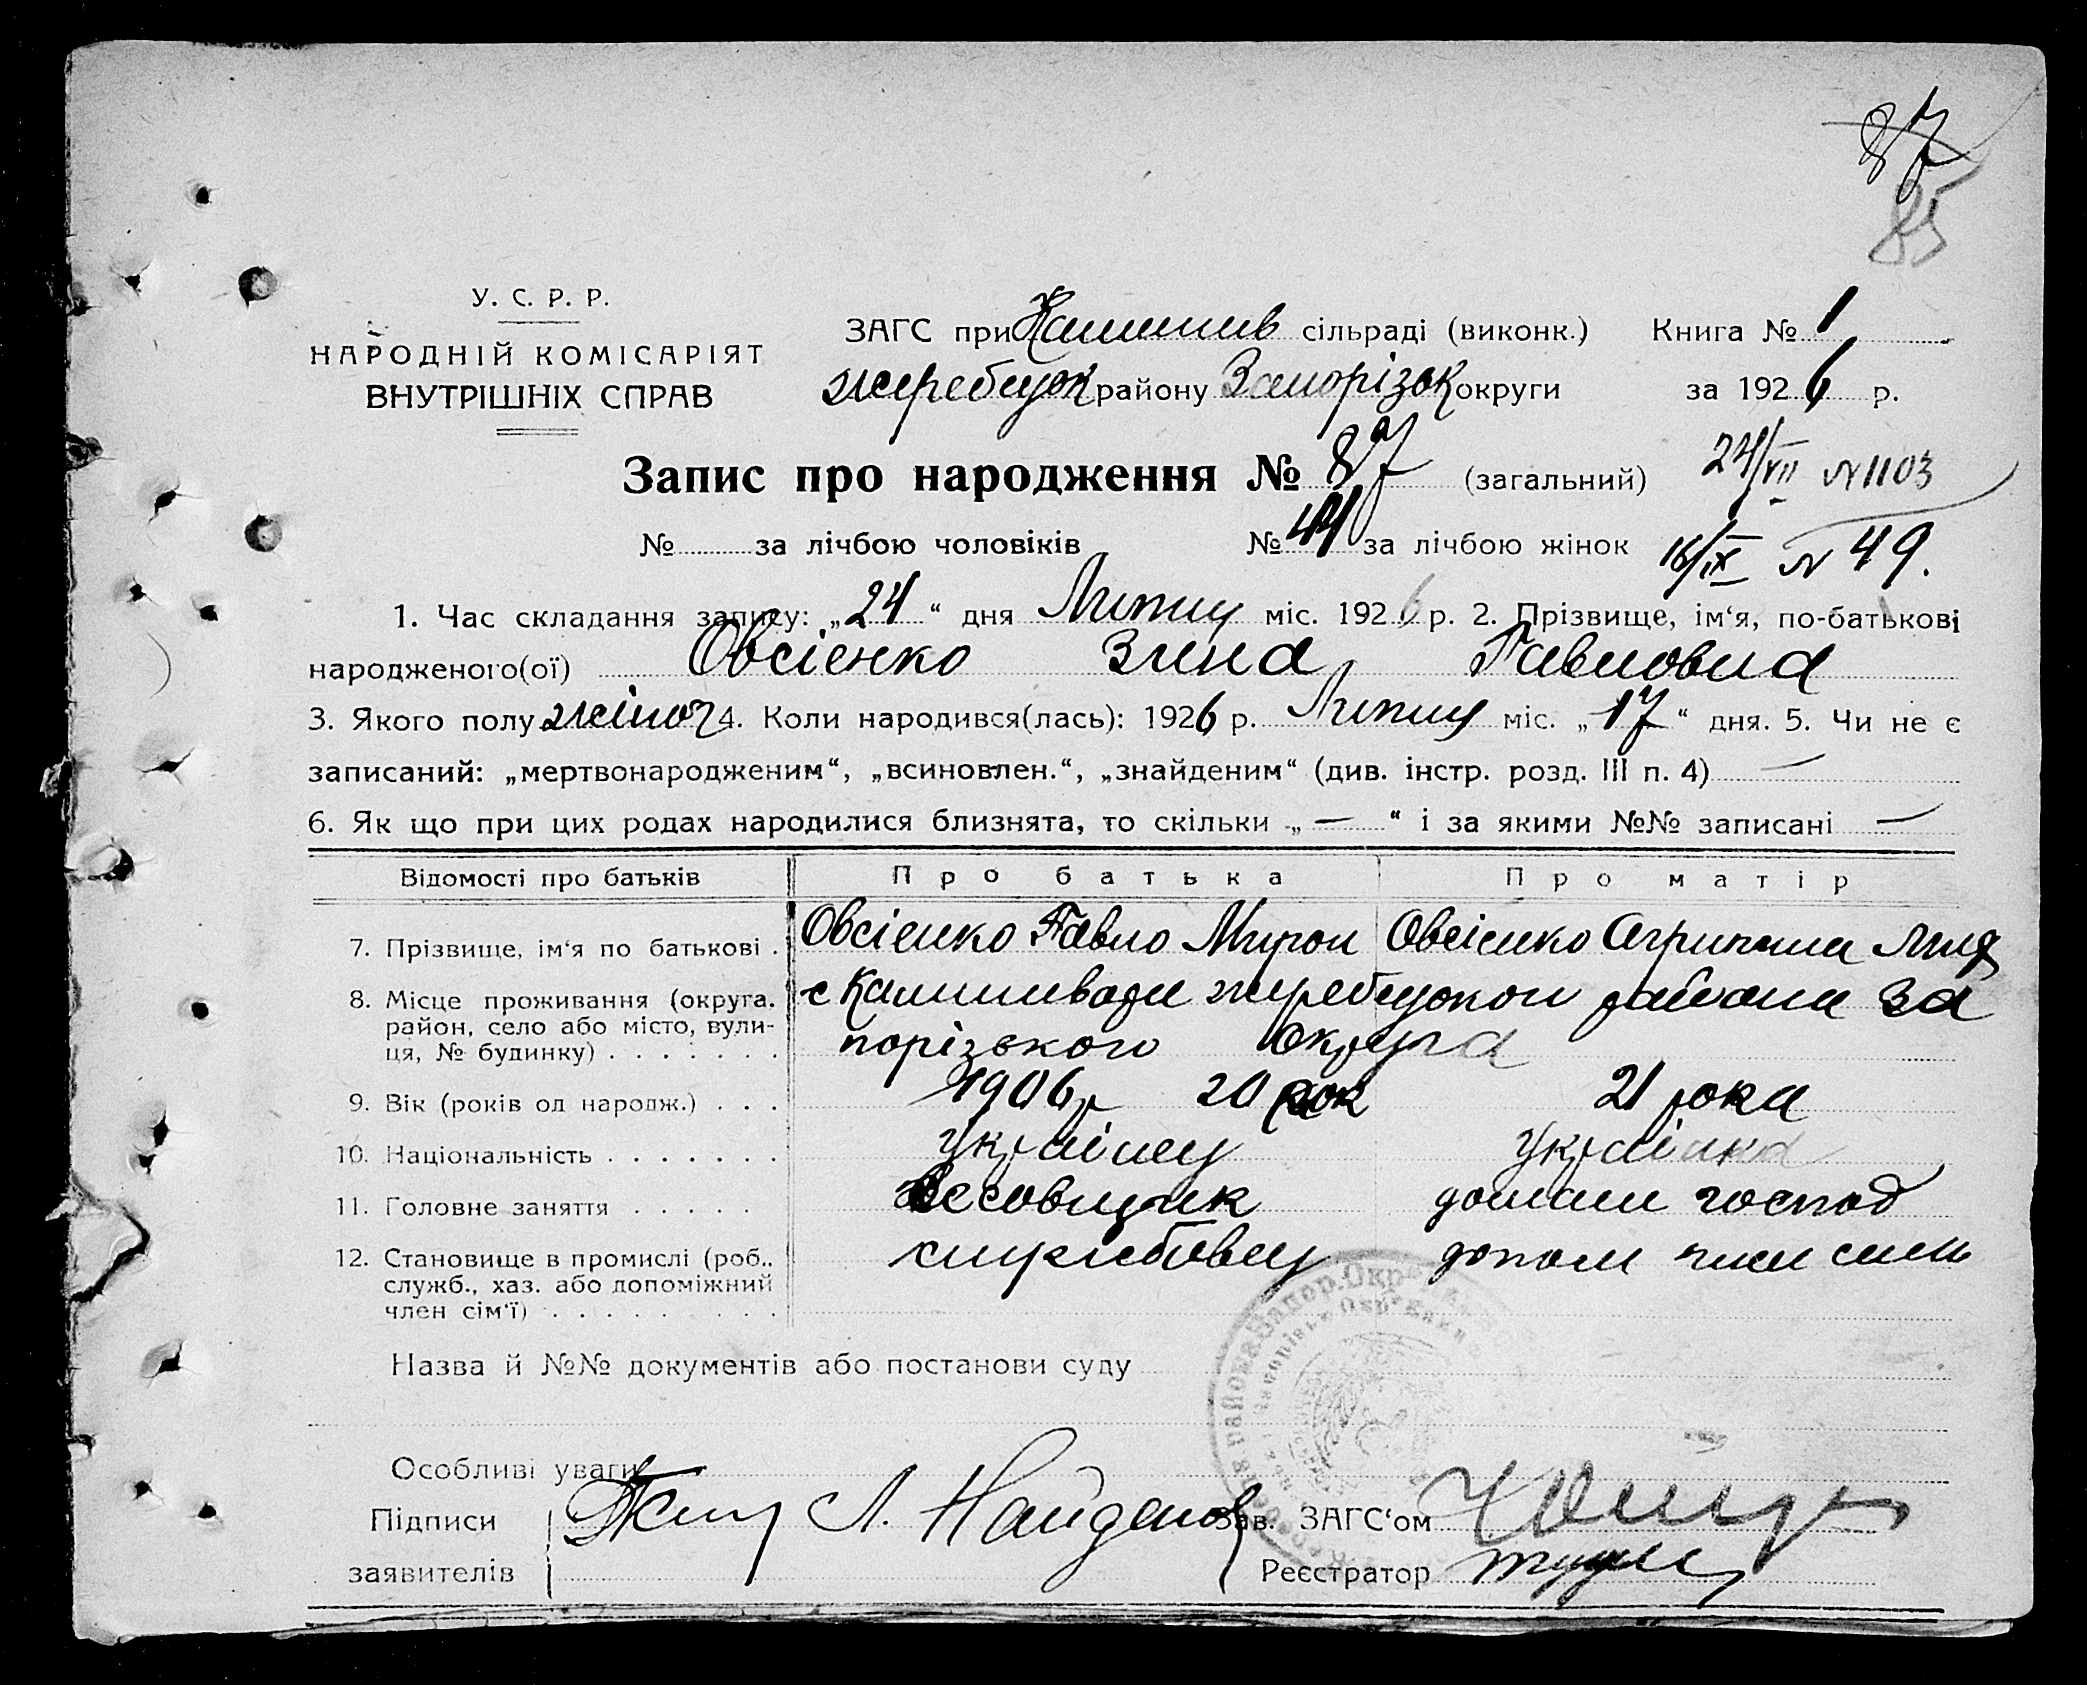 87
85
У. С. Р. Р.
НАРОДНІЙ КОМІСАРІЯТ
ВНУТРІШНІХ СПРАВ
ЗАГС при Камишив сільраді (виконк.) Книга № 1
жеребцок району Запорізьк округи за 1926 р.
Запис про народження № 87 (загальний) 24/VII N 1103
№ за лічбою чоловіків № 44 за лічбою жінок 16/IX N 49.
1. Час складання запису: „24“ дня Липцу міс. 1926 р. 2. Прізвище, ім‘я, по-батькові
народженого(ої) Овсієнко Зина Павловна
3. Якого полу жіноч 4. Коли народився(лась): 1926 р. Липцу міс. „17“ дня. 5. Чи не є
записаний: „мертвонародженим“, „всиновлен.“, „знайденим“ (див. інстр. розд. III п. 4) —
6. Як що при цих родах народилися близнята, то скільки „—“ і за якими №№ записані —
Відомості про батьків Про батька Про матір
7. Прізвище, ім‘я по батькові . Овсієнко Павло Мирон Овсієнко Агрипина
8. Місце проживання (округа, район, село або місто, вулиця, № будинку) с Камишиваха жеребцокои района За
порізького Округа
9. Вік (років од народж.) . . . 1906 р 20 рок 21 рока
10. Національність . . . . . . . Українец Українка
11. Головне заняття . . . . . Весовщик домаш господ
12. Становище в промислі (роб., служб., хаз. або допоміжний член сім‘ї) службовец допом член сім
Назва й №№ документів або постанови суду
Особливі уваги
Підписи Л. Найденов Зав. ЗАГС‘ом
заявителів Реєстратор